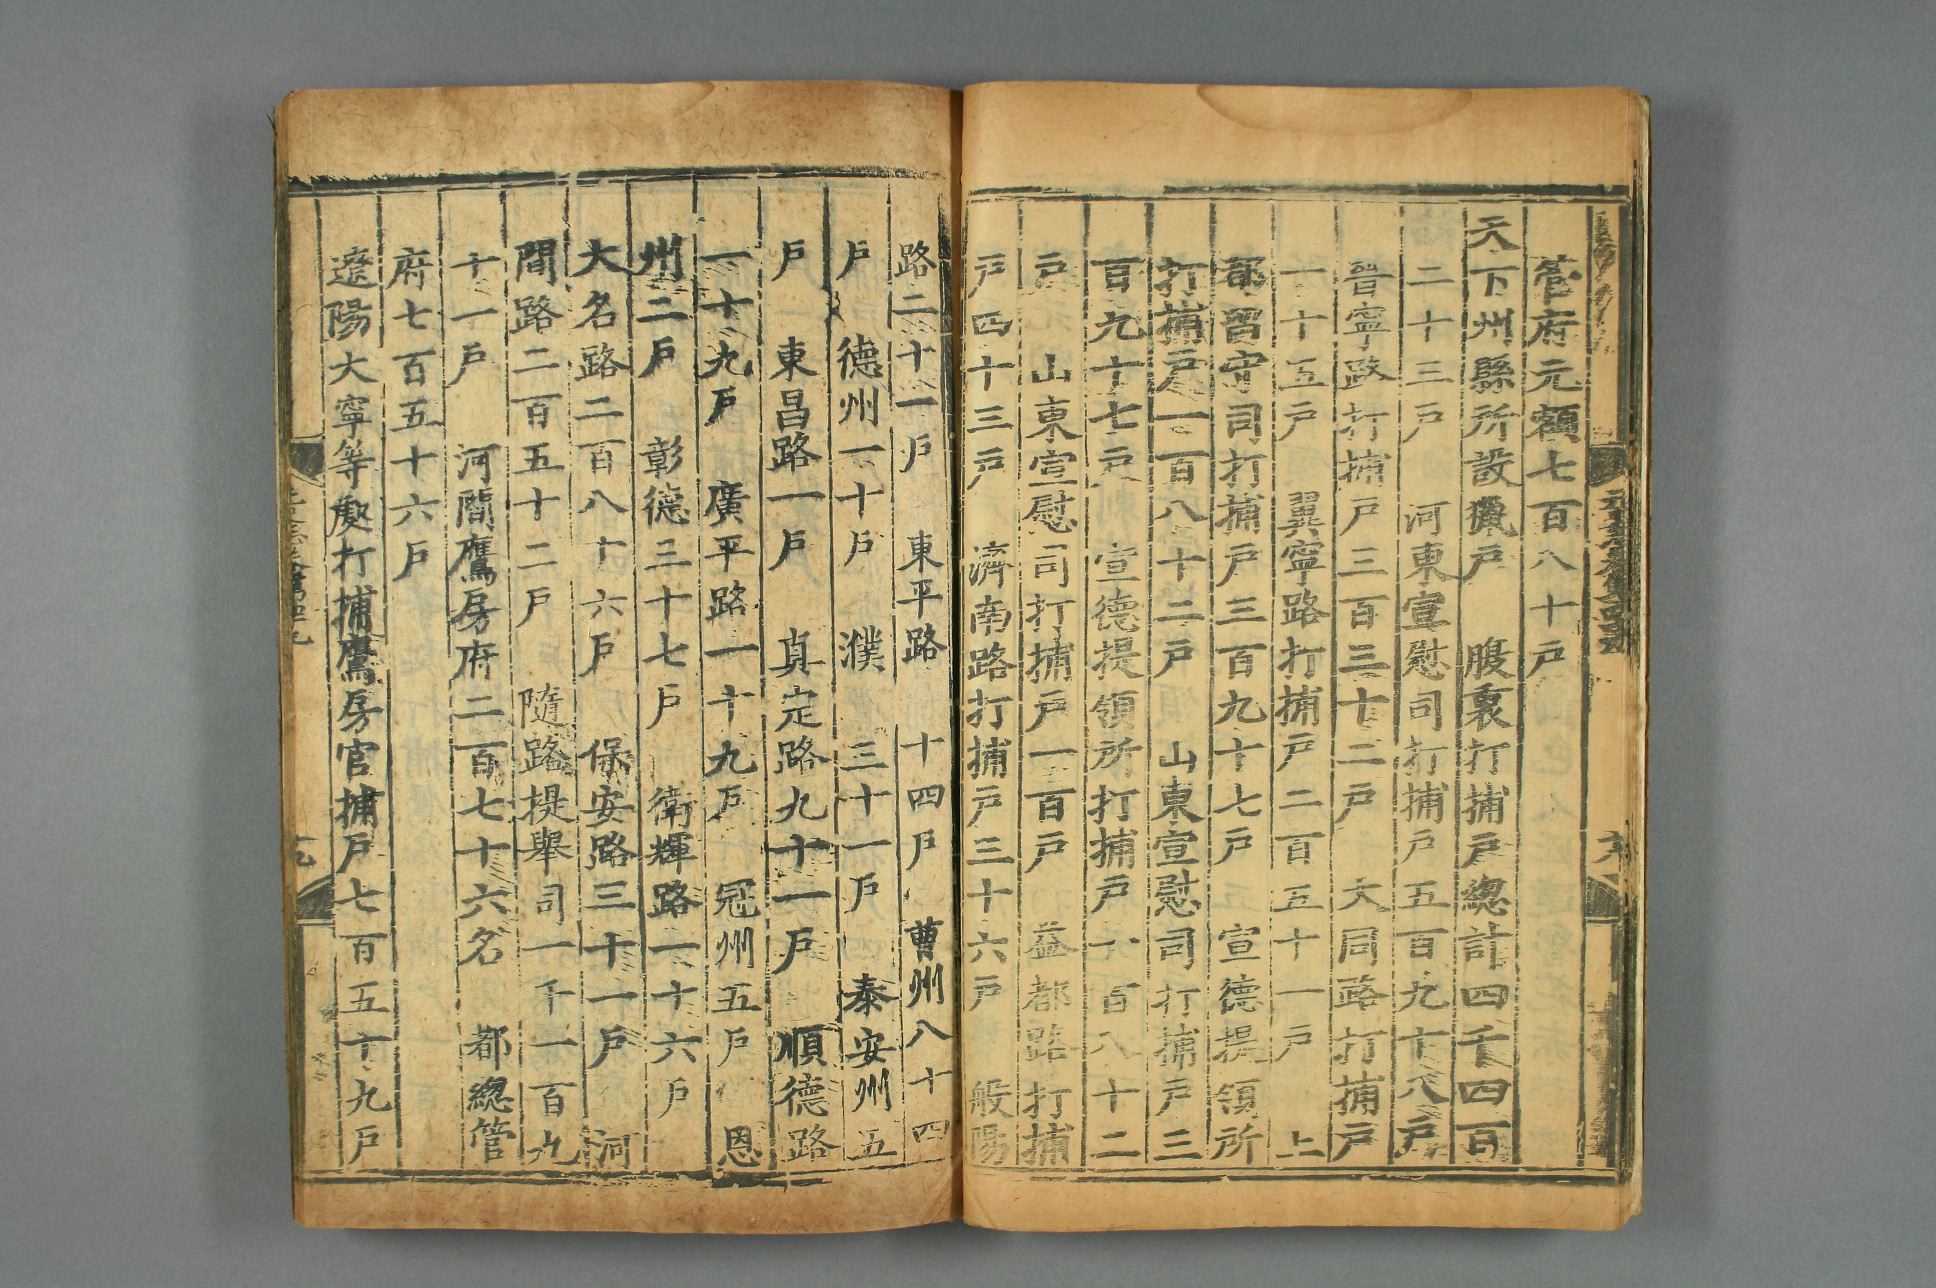 管府元額七百八十戶
天下州縣所設獵戶 腹裏打捕戶總計四千四百
二十三戶 河東宣慰司打捕戶五百九十八戶
晉寧路打捕戶三百三十二戶 大同路打捕戶
一十五戶 冀寧路打捕戶二百五十一戶 上
都留守司打捕戶三百九十七戶 宣德提領所
打捕戶一百八十二戶 山東宣慰司打捕戶三
百九十七戶 宣德提領所打捕戶一百八十二
戶 山東宣慰司打捕戶一百戶 益都路打捕
戶四十三戶 濟南路打捕戶三十六戶 般陽
路二十一戶 東平路 十四戶 曹州八十四
戶 德州一十戶 濮 三十一戶 泰安州五
戶 東昌路一戶 真定路九十一戶 順德路
一十九戶 廣平路一十九戶 冠州五戶 恩
州二戶 彰德三十七戶 衛輝路一十六戶
大名路二百八十六戶 保安路三十一戶 河
間路二百五十二戶 隨路提舉司一千一百九
十一戶 河間鷹房府二百七十六名 都總管
府七百五十六戶
遼陽大寧等處打捕鷹房官捕戶七百五十九戶